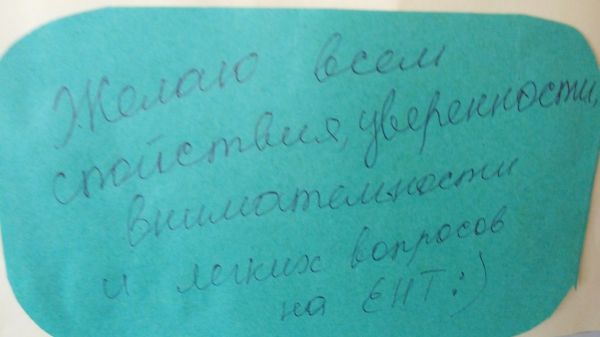 Желаю всем
спойствия, уверенности,
внимательности
и легких вопросов
на ЕНТ :)